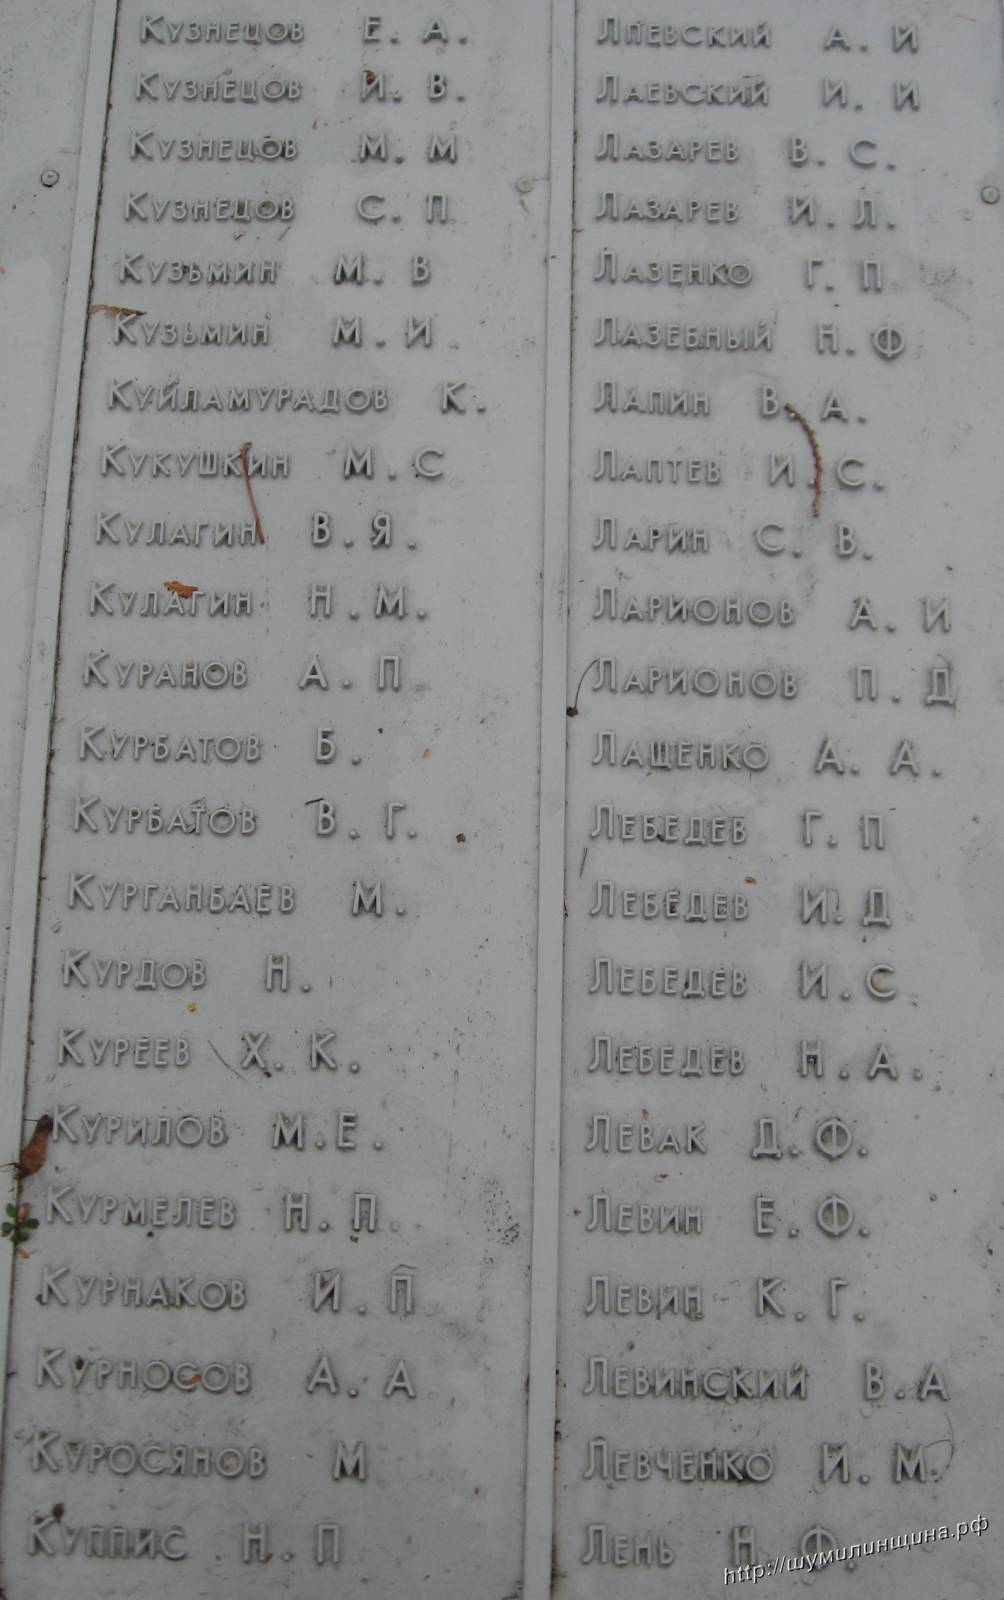 Кузнецов Е. А.
Кузнецов И. В.
Кузнецов М. М
Кузнецов С. П
Кузьмин М. В
Кузьмин М. И
Куйламурадов К.
Кукушкин М. С
Кулагин В. Я.
Кулагин Н. М.
Куранов А. П
Курбатов Б.
Курбатов В. Г.
Курганбаев М.
Курдов Н.
Куреев Х. К.
Курилов М. Е.
Курмелев Н. П.
Курнаков И. П
Курносов А. А
Куросянов М
Куппис Н. П
Лпевский А. И
Лаевский И. И
Лазарев В. С.
Лазарев И. Л.
Лазенко Г. П
Лазебный Н. Ф
Лапин В. А.
Лаптев И. С.
Ларин С. В.
Ларионов А. И
Ларионов П. Д
Лащенко А. А.
Лебедев Г. П
Лебедев И. Д
Лебедев И. С
Лебедев Н. А.
Левак Д. Ф.
Левин Е. Ф.
Левин К. Г.
Левинский В. А
Левченко И. М.
Лень Н. Ф.
http://шумилинщина.рф